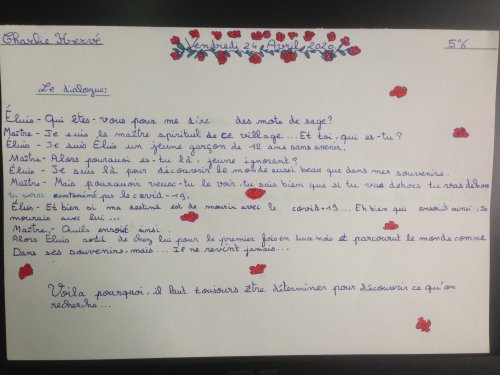 Charlie Hervé
Vendredi 24 Avril 2020
5°6
Le dialogue:
Éluis - Qui êtes-vous pour me dire des mots de sage?
Maître - Je suis le maître spirituel de ce village... Et toi, qui es-tu?
Éluis - Je suis Éluis un jeune garçon de 12 ans sans avenir!
Maître - Alors pourquoi es-tu là, jeune ignorant?
Éluis - Je suis là pour découvrir le monde aussi beau que dans mes souvenirs.
Maître - Mais pourquoi veux-tu le voir, tu sais bien que si tu vas dehors tu vas dehors
tu vas contaminé par le covid-19,
Éluis - Et bien si ma destiné est de mourir avec le covid-19... Eh bien qui ensoit ainsi, je
mourais avec lui...
Maître,- Quils ensoit ainsi.
Alors Éluis sortit de chez lui pour la première fois en deux mois et parcourut le monde comme
Dans ses souvenirs, mais... Il ne revint jamais...
Voila pourquoi, il faut toujours être déterminer pour découvrir ce qu'on
recherche...